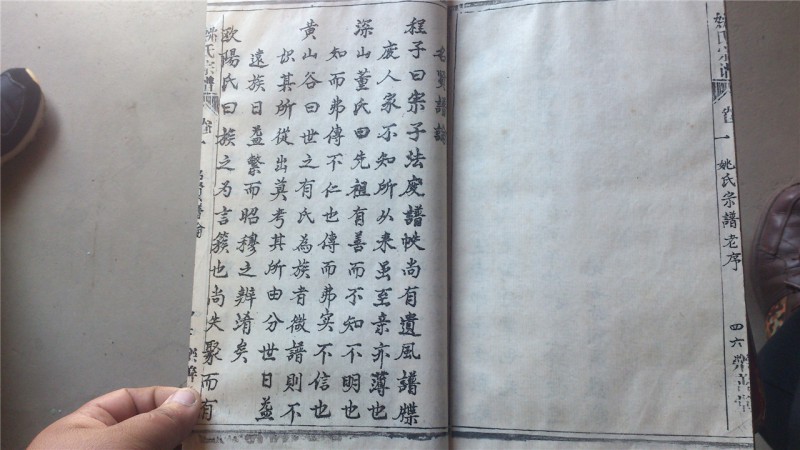 姚氏宗谱
卷一
姚氏宗譜老序
四六
堂
名賢譜論
程子曰宗子法廢譜帙尚有遺風譜牒
废人家不知所以来虽至亲亦薄也
深山董氏曰先祖有善而不知不明也
知而弗傳不仁也傳而弗实不信也
黄山谷曰世之有氏為族者微譜則不
识其所從出莫考其所由分世日益
遠族日益繁而昭穆之辨淆矣
欧陽氏曰族之为言簇也尚失聚而有
姚氏宗譜
卷一